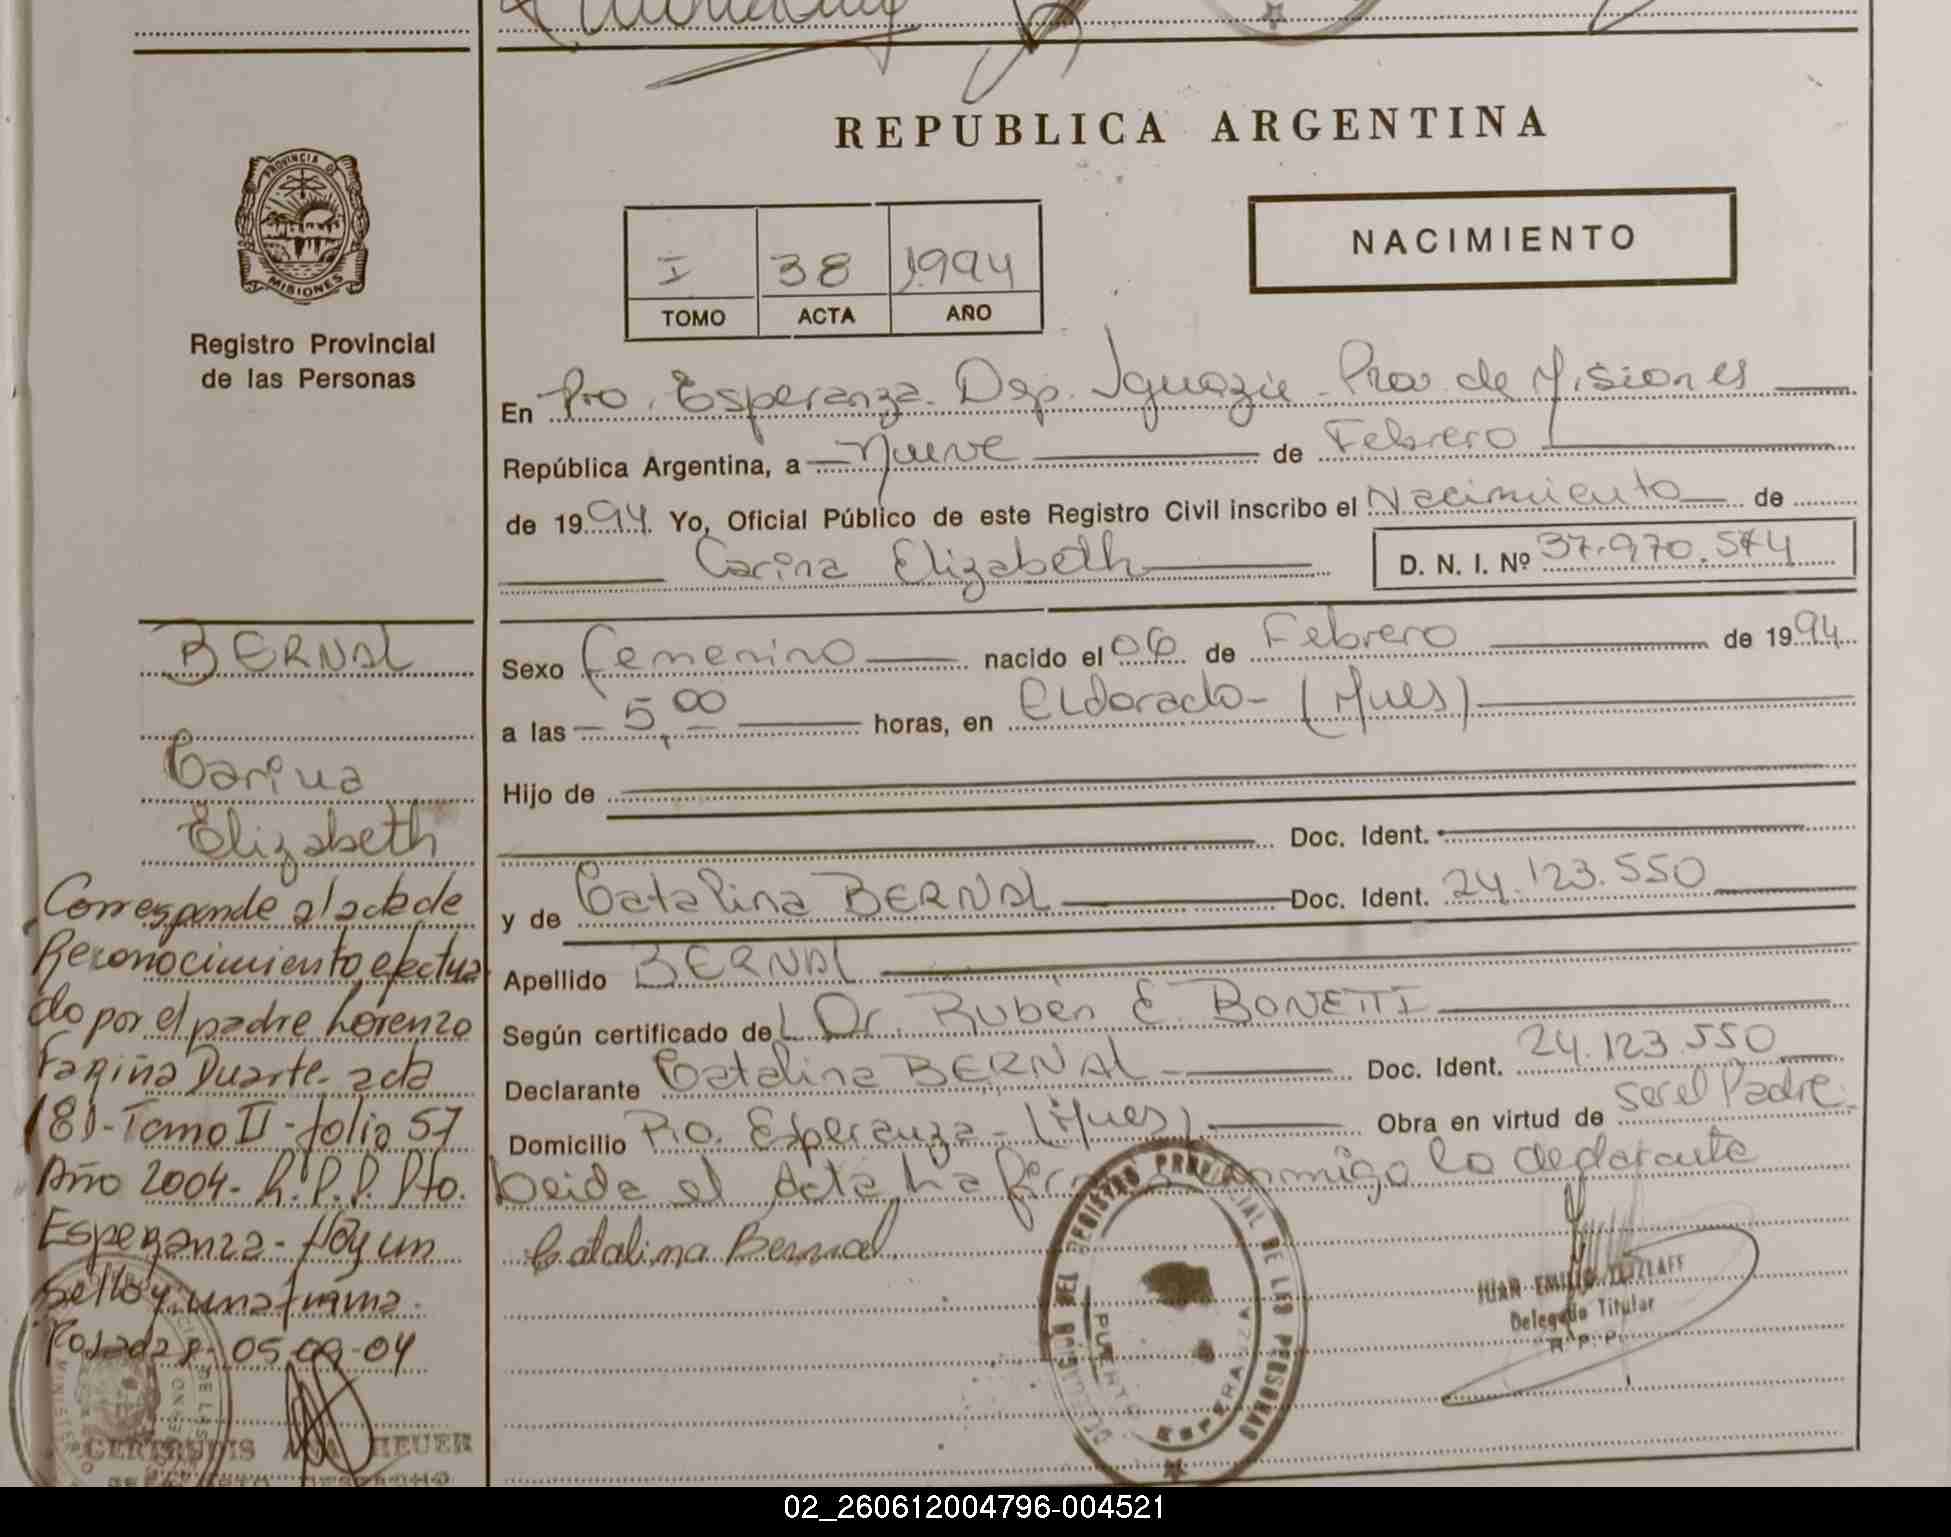 REPUBLICA ARGENTINA
PROVINCIA DE
MISIONES
Registro Provincial
de las Personas
I 38 1994
TOMO ACTA AÑO
NACIMIENTO
En Pto. Esperanza. Dep. Iguazú - Prov de Misiones
República Argentina, a nueve de Febrero
de 1994 Yo, Oficial Público de este Registro Civil inscribo el Nacimiento de
Carina Elizabeth
D. N. I. Nº 37.970.574
Sexo femenino nacido el 06 de Febrero de 1994
a las 5,00 horas, en Eldorado - (Mnes)
Hijo de
Doc. Ident.
y de Catalina BERNAL Doc. Ident. 24.123.550
Apellido BERNAL
Según certificado del Dr. Rubén E. BONETTI
Declarante Catalina BERNAL - Doc. Ident. 24.123.550
Domicilio Pto. Esperanza - (Mnes) Obra en virtud de ser el Padre.
Leida el Acta, ha firma conmigo la declarante
Catalina Bernal
REGISTRO PROVINCIAL DE LAS PERSONAS
PUERTO
ESPERANZA
JUAN EMILIO TETZLAFF
Delegado Titular
R.P.P.
BERNAL
Carina
Elizabeth
Corresponde al acta de
Reconocimiento efectua
do por el padre Lorenzo
Fariña Duarte - acta
181 - Tomo II - folio 57
Año 2004 - R.P.P. Pto.
Esperanza - Hay un
sello y una firma.
Posadas, 05-09-04
GERTRUDIS ANA HEUER
02_260612004796-004521